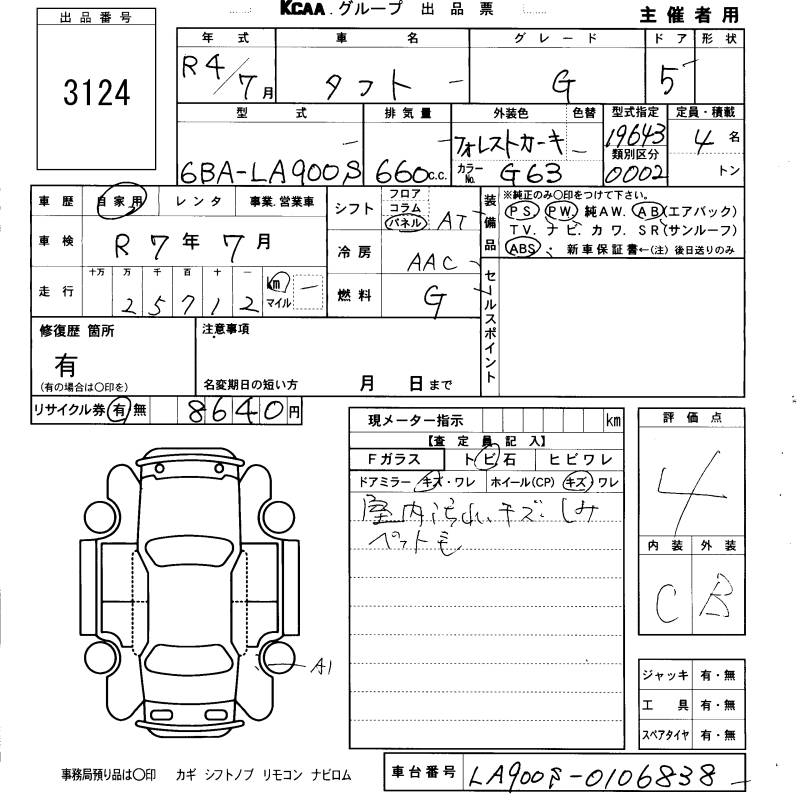 KCAA.グループ 出品票
主催者用
出品番号
3124
年式 車名 グレード ドア 形状
R4/7月 タフト G 5
型式 排気量 外装色 色替 型式指定 定員・積載
6BA-LA900S 660c.c. フォレストカーキ 19643 4名
カラーNo. G63 類別区分 0002 トン
車歴 自家用 レンタ 事業.営業車
車検 R7年7月
走行 十万 万 千 百 十 一 km マイル
25712
シフト フロア コラム パネル AT
冷房 AAC
燃料 G
装備品
※純正のみ○印をつけて下さい。
PS. PW. 純AW. AB(エアバック)
TV. ナビ. カワ. SR(サンルーフ)
ABS. 新車保証書←(注)後日送りのみ
セールスポイント
修復歴 箇所
有
(有の場合は○印を)
注意事項
名変期日の短い方 月 日まで
リサイクル券 有 無 8640円
現メーター指示 km
【査定員記入】
Fガラス トビ石 ヒビワレ
ドアミラー キズ・ワレ ホイール(CP) キズ・ワレ
室内汚れ.キズ.しみ
ペット毛
評価点
4
内装 外装
C B
A1
ジャッキ 有・無
工具 有・無
スペアタイヤ 有・無
事務局預り品は○印 カギ シフトノブ リモコン ナビロム
車台番号 LA900S-0106838